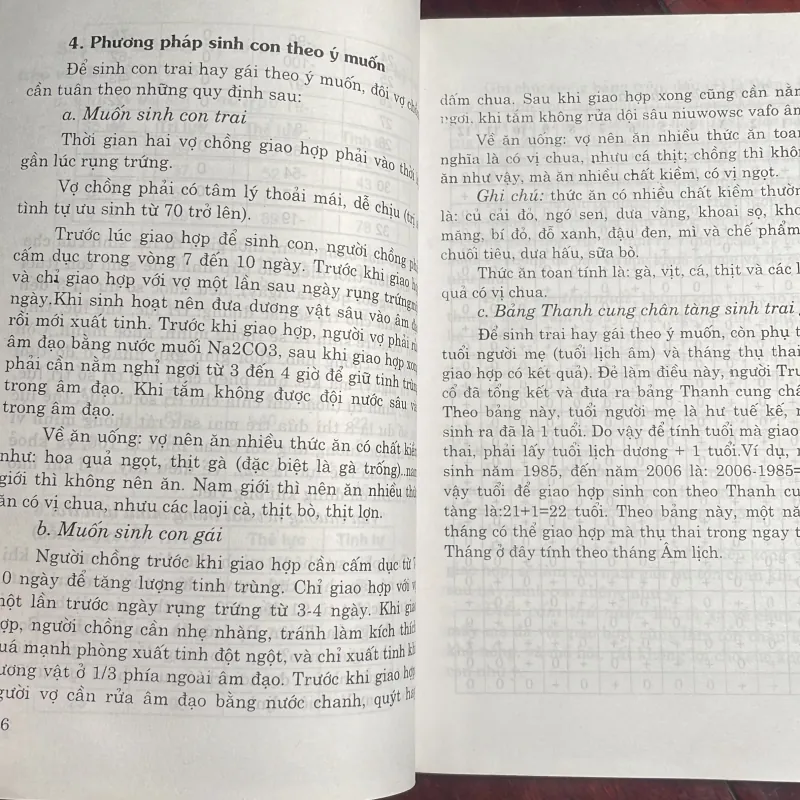 4. Phương pháp sinh con theo ý muốn
Để sinh con trai hay gái theo ý muốn, đôi vợ
cần tuân theo những quy định sau:
a. Muốn sinh con trai
Thời gian hai vợ chồng giao hợp phải vào
gần lúc rụng trứng.
Vợ chồng phải có tâm lý thoải mái, dễ chịu
tình tự ưu sinh từ 70 trở lên).
Trước lúc giao hợp để sinh con, người chồng
cấm dục trong vòng 7 đến 10 ngày. Trước khi giao
và chỉ giao hợp với vợ một lần sau ngày rụng trứng
ngày.Khi sinh hoạt nên đưa dương vật sâu vào âm
rồi mới xuất tinh. Trước khi giao hợp, người vợ phải
âm đạo bằng nước muối Na2CO3, sau khi giao hợp
phải cần nằm nghỉ ngơi từ 3 đến 4 giờ để giữ tinh
trong âm đạo. Khi tắm không được dội nước sâu
trong âm đạo.
Về ăn uống: vợ nên ăn nhiều thức ăn có chất
như: hoa quả ngọt, thịt gà (đặc biệt là gà trống)..
giới thì không nên ăn. Nam giới thì nên ăn nhiều
ăn có vị chua, nhưu các laoji cà, thịt bò, thịt lợn.
b. Muốn sinh con gái
Người chồng trước khi giao hợp cần cấm dục từ
0 ngày để tăng lượng tinh trùng. Chỉ giao hợp với
một lần trước ngày rụng trứng từ 3-4 ngày. Khi
hợp, người chồng cần nhẹ nhàng, tránh làm kích
quá mạnh phòng xuất tinh đột ngột, và chỉ xuất tinh
dương vật ở 1/3 phía ngoài âm đạo. Trước khi giao
người vợ cần rửa âm đạo bằng nước chanh, quýt
6
dấm chua. Sau khi giao hợp xong cũng cần
ngơi, khi tắm không rửa dội sâu niuwowsc vafo
Về ăn uống: vợ nên ăn nhiều thức ăn toan
nghĩa là có vị chua, nhưu cá thịt; chồng thì
ăn như vậy, mà ăn nhiều chất kiềm, có vị ngọt.
Ghi chú: thức ăn có nhiều chất kiềm
là: củ cải đỏ, ngó sen, dưa vàng, khoai sọ,
măng, bí đỏ, đỗ xanh, đậu đen, mì và chế phẩm
chuối tiêu, dưa hấu, sữa bò.
Thức ăn toan tính là: gà, vịt, cá, thịt và các
quả có vị chua.
c. Bảng Thanh cung chân tàng sinh trai
Để sinh trai hay gái theo ý muốn, còn phụ
tuổi người mẹ (tuổi lịch âm) và tháng thụ thai
giao hợp có kết quả). Đẻ làm điều này, người
cổ đã tổng kết và đưa ra bảng Thanh cung
Theo bảng này, tuổi người mẹ là hư tuế kế,
sinh ra đã là 1 tuổi. Do vậy để tính tuổi mà giao
thai, phải lấy tuổi lịch dương + 1 tuổi.Ví dụ,
sinh năm 1985, đến năm 2006 là: 2006-1985=
vậy tuổi để giao hợp sinh con theo Thanh
tàng là:21+1=22 tuổi. Theo bảng này, một
tháng có thể giao hợp mà thụ thai trong ngay
Tháng ở đây tính theo tháng Âm lịch.